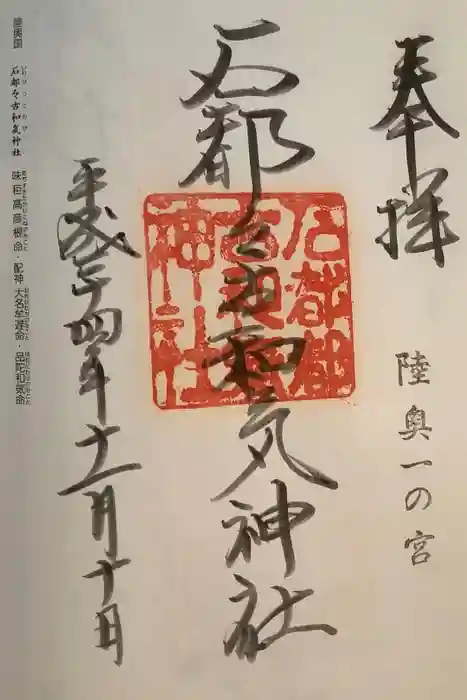 奉拝
陸奥一の宮
石都々古和気神社
石都都
古和氣
神社
平成廿四年十一月十日
陸奥国 石都々古和気神社 味秬高彦根命・配神 大名牟遅命・品陀和気命